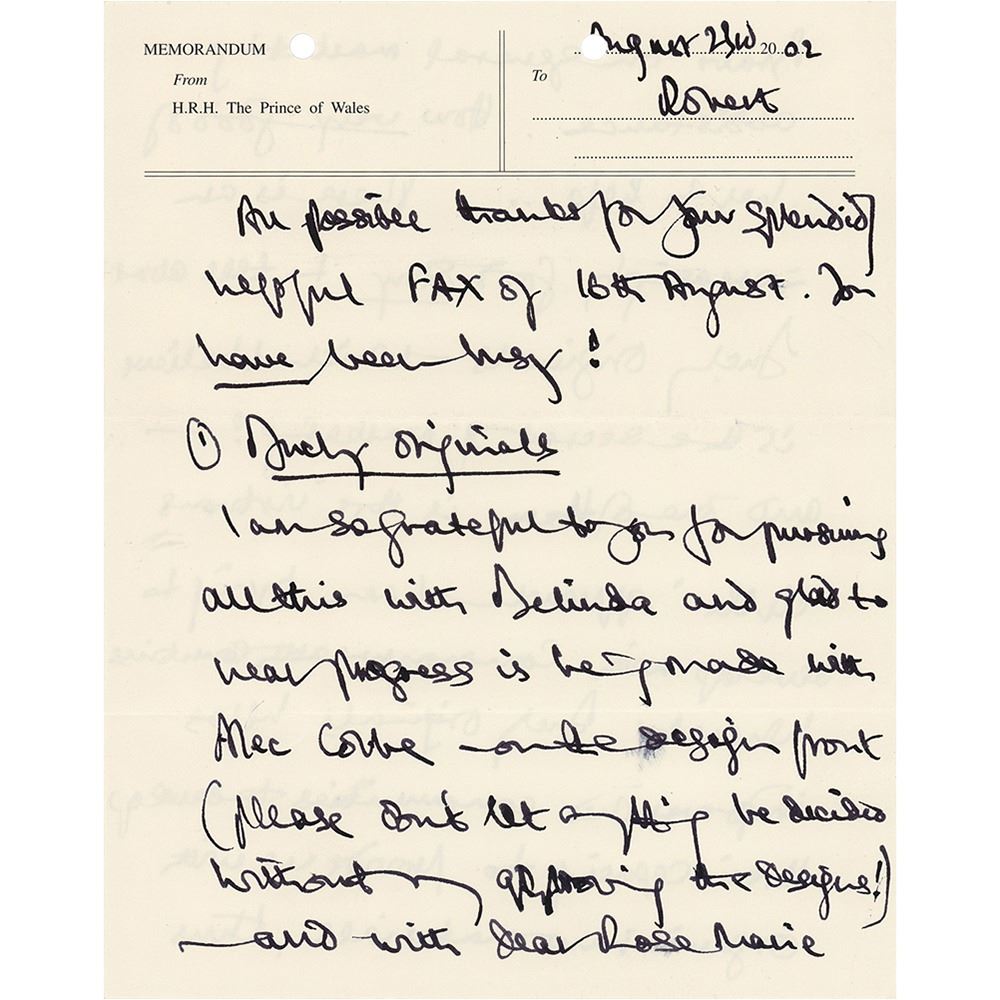 MEMORANDUM
From
H.R.H. The Prince of Wales
August 23rd 2002
To
Robert
All possible thanks for your splendid,
helpful FAX of 16th August. You
have been busy!
① Duchy Originals
I am so grateful to you for pursuing
all this with Belinda and glad to
hear progress is being made with
Alec Cobbe - on the design front
(please don't let anything be decided
without my approving the designs!)
- and with dear Rose Marie